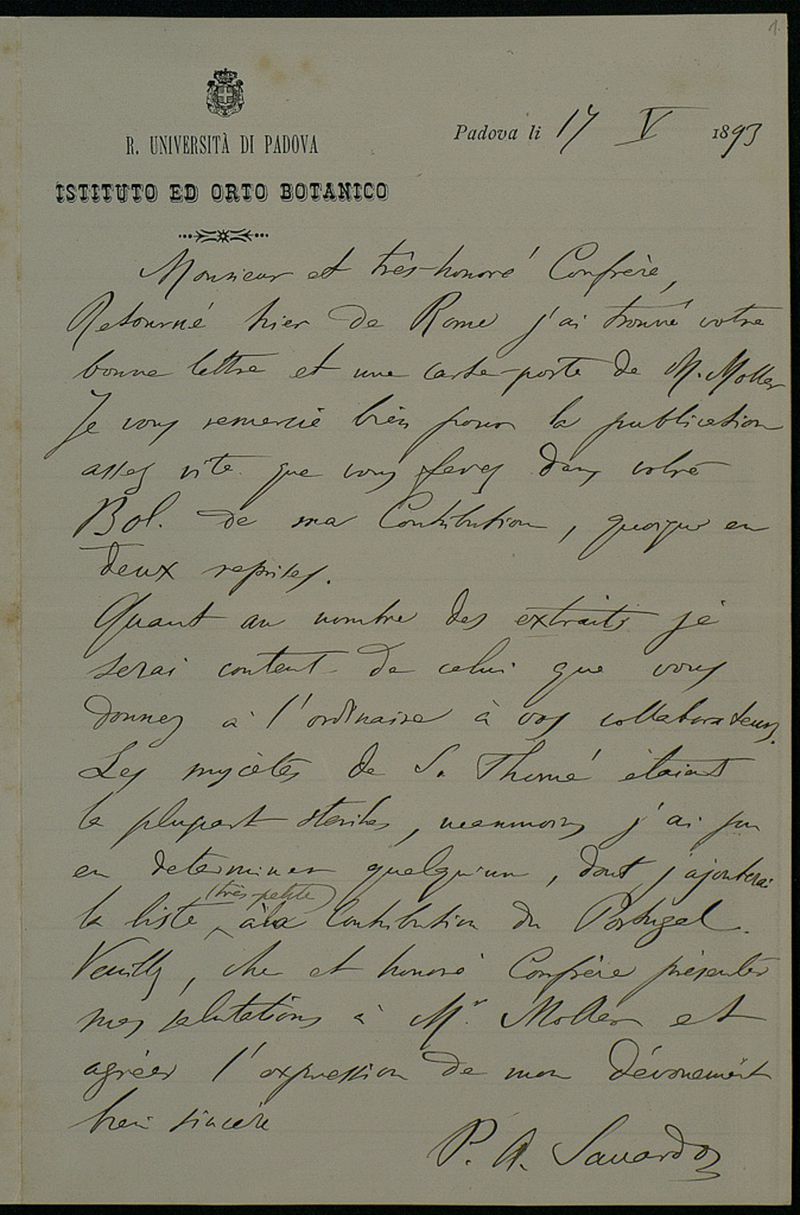 1.
R. UNIVERSITÀ DI PADOVA
ISTITUTO ED ORTO BOTANICO
Padova li 17 V 1893
Monsieur et très-honoré Confrère,
Retourné hier de Rome j'ai trouvé votre
bonne lettre et une carte-poste de M. Moller
Je vous remercie bien pour la publication
assez vite que vous ferez dans votre
Bol. de ma Contribution, quoique en
deux reprises.
Quant au nombre des extraits je
serai content de celui que vous
donnez à l'ordinaire à vos collaborateurs.
Les mycètes de S. Thomé étaient
la plupart steriles, neanmoins j'ai pu
en determiner quelqu'un, dont j'ajouterai
la liste (très-petite) à la Contribution du Portugal.
Veuillez, cher et honoré Confrère présenter
mes salutations à Mr Moller et
agréer l'expression de mon dévouement
bien sincère
P. A. Saccardo